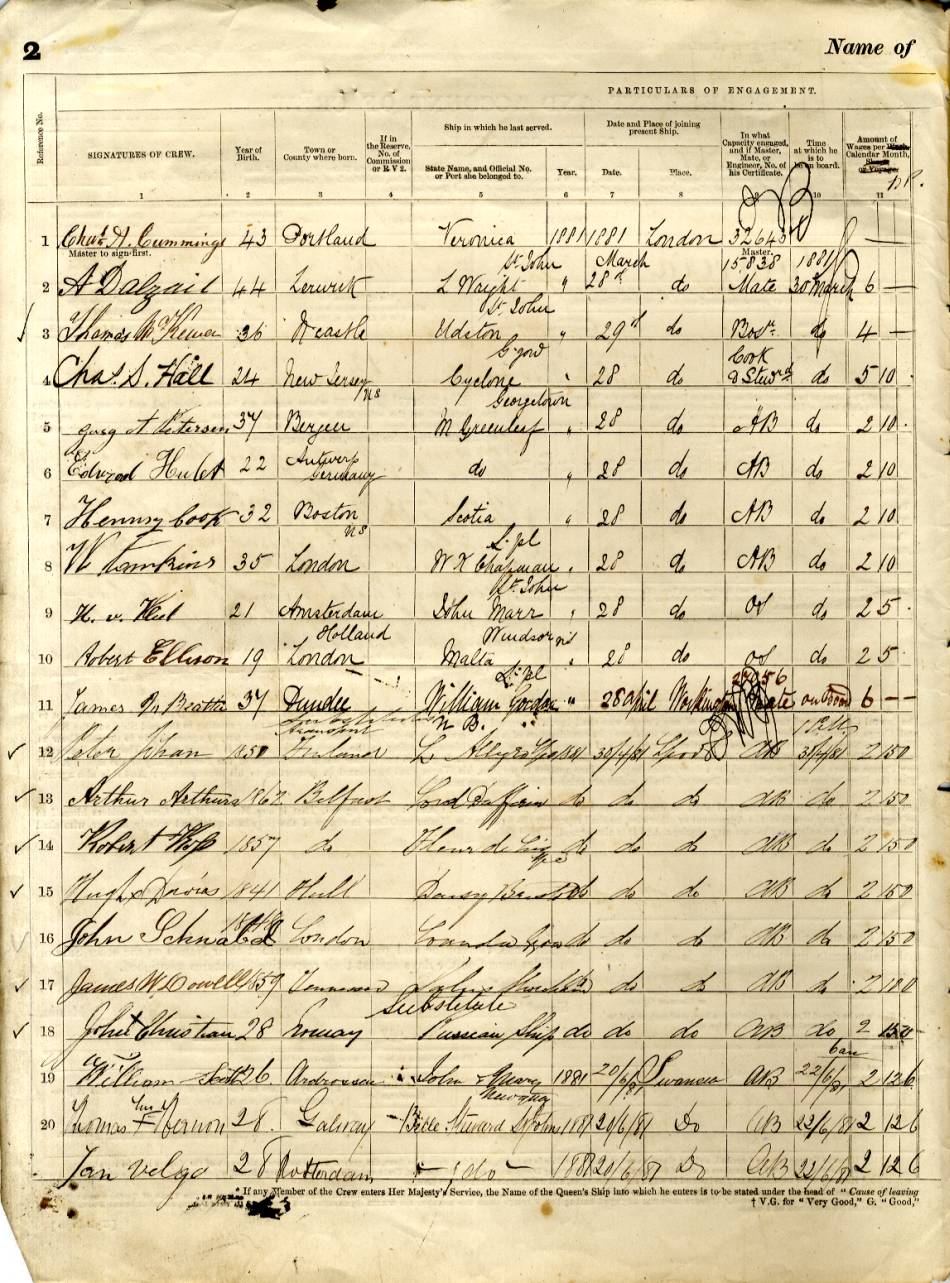 2
Name of
PARTICULARS OF ENGAGEMENT.
Reference No.
SIGNATURES OF CREW.
Year of Birth.
Town or County where born.
If in the Reserve, No. of Commission or R V 2.
Ship in which he last served.
State Name, and Official No. or Port she belonged to.
Year.
Date and Place of joining present Ship.
Date.
Place.
In what Capacity engaged, and if Master, Mate, or Engineer, No. of his Certificate.
Time at which he is to be on board.
Amount of Wages per Week Calendar Month, Share or Voyage
1 2 3 4 5 6 7 8 9 10 11
1 Chas. A. Cummings 43 Portland Veronica 1881 1881 London 32643 —
Master to sign first.
St. John March Master. 15838 1881
2 A Dalzail 44 Lerwick L Wright " 28th do Mate 30 March 6 —
St. John
3 Thomas 26 Ncastle Udston " 29th do Bosn do 4 —
G.gow Cook
4 Chas. S. Hall 24 New Jersey Cyclone " 28 do & Stewrd do 5 10
Georgetown
5 Petersen 37 Bergen M Greenleaf " 28 do AB do 2 10
6 Edward 22 Antwerp Germany do " 28 do AB do 2 10
7 Hennry Cook 32 Boston Scotia " 28 do AB do 2 10
L.pl
8 W Tamkins 35 London W H Chapman " 28 do AB do 2 10
St. John
9 H. v. 21 Amsterdam John Marr " 28 do OS do 2 5
Holland Windsor
10 Robert Ellison 19 London Malta " 28 do OS do 2 5
L.pl
11 James Beattie 37 Dundee William Gordon " 28 April Workington Mate on board 6 — —
N. B.
12 Peter Johan 1850 L 30/4/81 AB 2 15 0
13 Arthur Arthurs Belfast Lord Dufferin do do do AB do 2 15 0
14 Robert 1857 do Fleur de do do do AB do 2 15 0
15 Hugh Davies 1841 Hull do do AB do 2 15 0
16 John Schnabel London do do do AB do 2 15 0
17 James 1859 do do AB do 2
Substitute
18 John Christian 28 Norway Russian Ship do do do AB do 2 15 0
6am
19 William Scott 26 Ardrossan John & Mary 1881 20/6/81 Swansea AB 22/6/81 2 12 6
20 Thomas Vernon 28 Galway Steward St John 1881 20/6/81 Do AB 22/6/81 2 12 6
Jan Velgo 28 Rotterdam - do - 1881 20/6/81 Do AB 22/6/81 2 12 6
* If any Member of the Crew enters Her Majesty's Service, the Name of the Queen's Ship into which he enters is to be stated under the head of "Cause of leaving
† V.G. for "Very Good," G. "Good,"